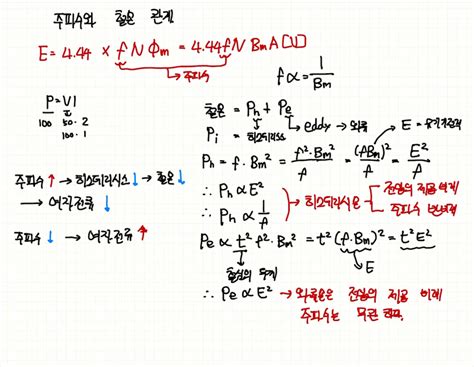 주파수와 철손 관계
E = 4.44 × f N Φm = 4.44 f N Bm A [V]
→ 주파수
f ∝ 1/Bm
P = VI
100 50·2
100·1
철손 = Ph + Pe
→ eddy → 와류
Pi = 히스테리시스
Ph = f·Bm² = f²·Bm²/f = (fBm)²/f = E²/f
주파수 ↑ → 히스테리시스 ↓ → 철손 ↓
→ 여자전류 ↓
∴ Ph ∝ E²
∴ Ph ∝ 1/f
→ 히스테리시스손은
전압의 제곱 비례
주파수 반비례
주파수 ↓ → 여자전류 ↑
Pe ∝ t² f²·Bm² = t²(f·Bm)² = t²E²
철심의 두께
E
∴ Pe ∝ E² → 와류손은 전압의 제곱 비례
주파수는 무관